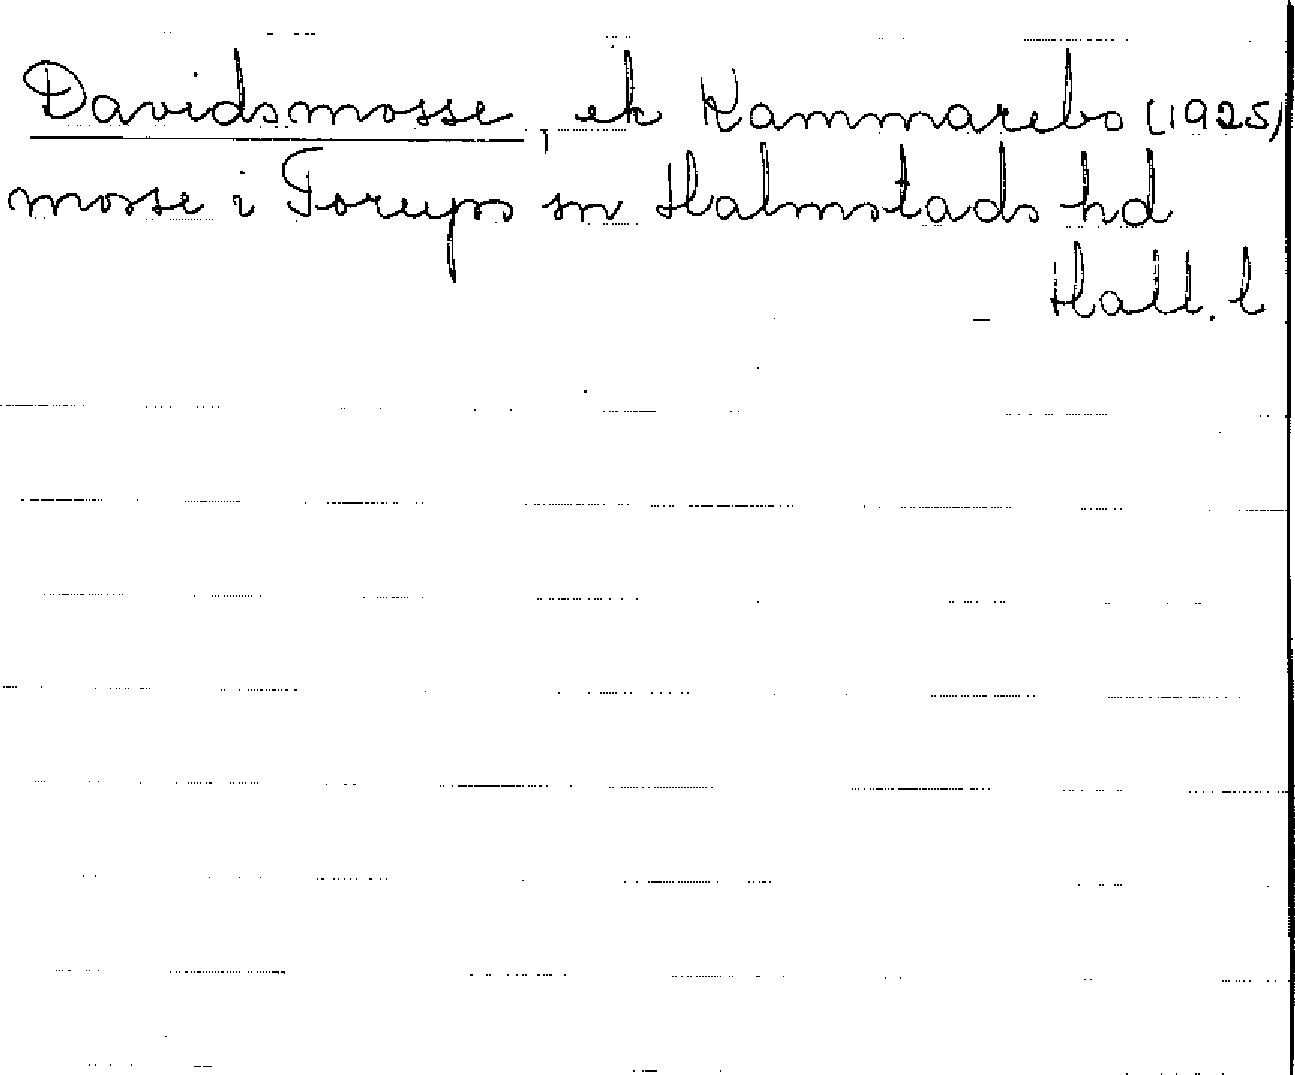 Davidsmosse, ek Kammarebo (1925)
mosse i Torups sn Halmstads hd
Hall. l